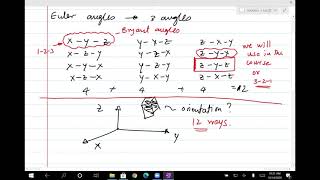 Euler angles → 3 angles
Bryant angles
1-2-3
x-y-z y-x-z z-x-y
x-z-y y-z-x z-y-x
x-y-x y-x-y z-y-z
x-z-x y-z-y z-x-z
we will use in this course or 3-2-1
4 + 4 + 4 = 12
Z
~ orientation?
12 ways.
X
Y